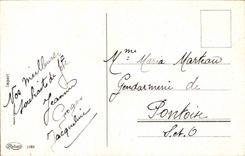 Nos meilleurs
souhaits de fête
Jeannine
Jacqueline
Mme Maria Marteau
Gendarmerie de
Pontoise
S.et.O